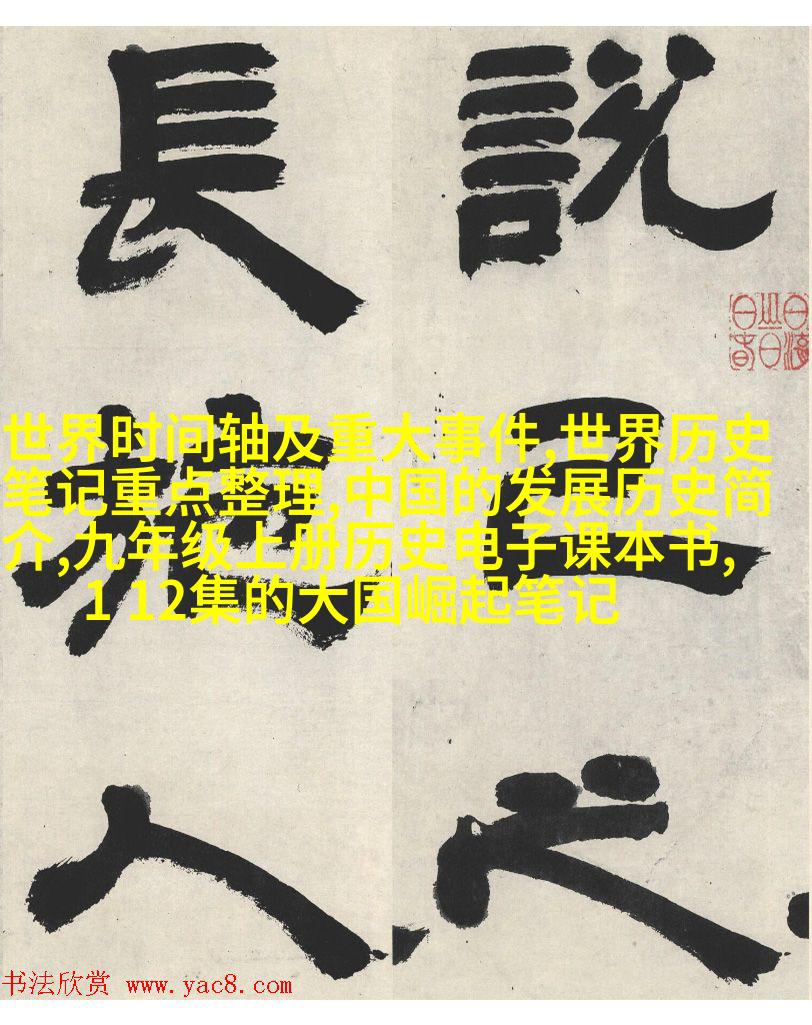 說己之
長施人
世界时间轴及重大事件,世界历史
笔记重点整理,中国的发展历史简
介,九年级上册历史电子课本书,
1 12集的大国崛起笔记
书法欣赏 www.yac8.com